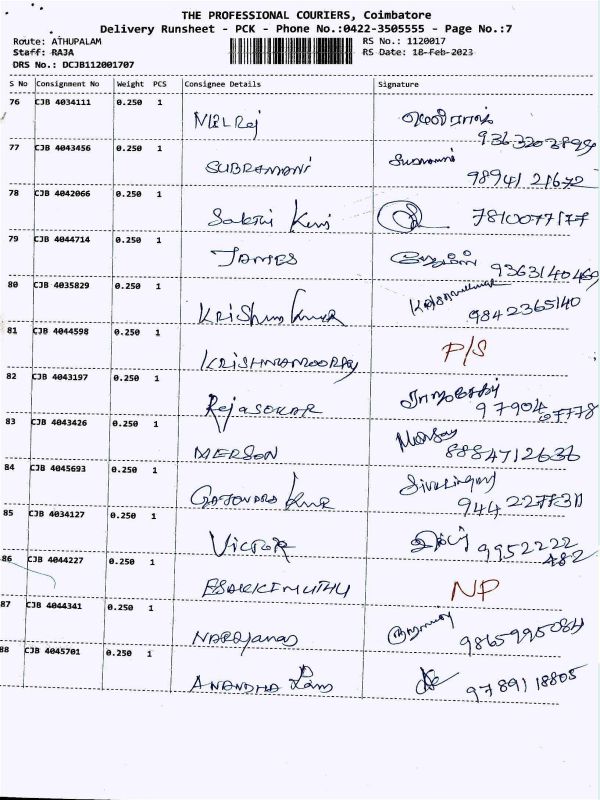 THE PROFESSIONAL COURIERS, Coimbatore
Delivery Runsheet - PCK - Phone No.:0422-3505555 - Page No.:7
Route: ATHUPALAM RS No.: 1120017
Staff: RAJA RS Date: 18-Feb-2023
DRS No.: DCJB112001707
S No Consignment No Weight PCS Consignee Details Signature
76 CJB 4034111 0.250 1
77 CJB 4043456 0.250 1
SUBRAMANI 98941 21672
78 CJB 4042066 0.250 1
Sakthi 7810077177
79 CJB 4044714 0.250 1
JAMES 9363140469
80 CJB 4035829 0.250 1
Krishna Kumar 9842365140
81 CJB 4044598 0.250 1
KRISHNAMOORTHY P/S
82 CJB 4043197 0.250 1
RajaSEKAR 97904 07778
83 CJB 4043426 0.250 1
MERSON 8884712636
84 CJB 4045693 0.250 1
85 CJB 4034127 0.250 1
VICTOR 9952222
482
86 CJB 4044227 0.250 1
ESAKKIMUTHU NP
87 CJB 4044341 0.250 1
NARAYANAN 9865995084
88 CJB 4045701 0.250 1
ANANDHA Ram 9789118805